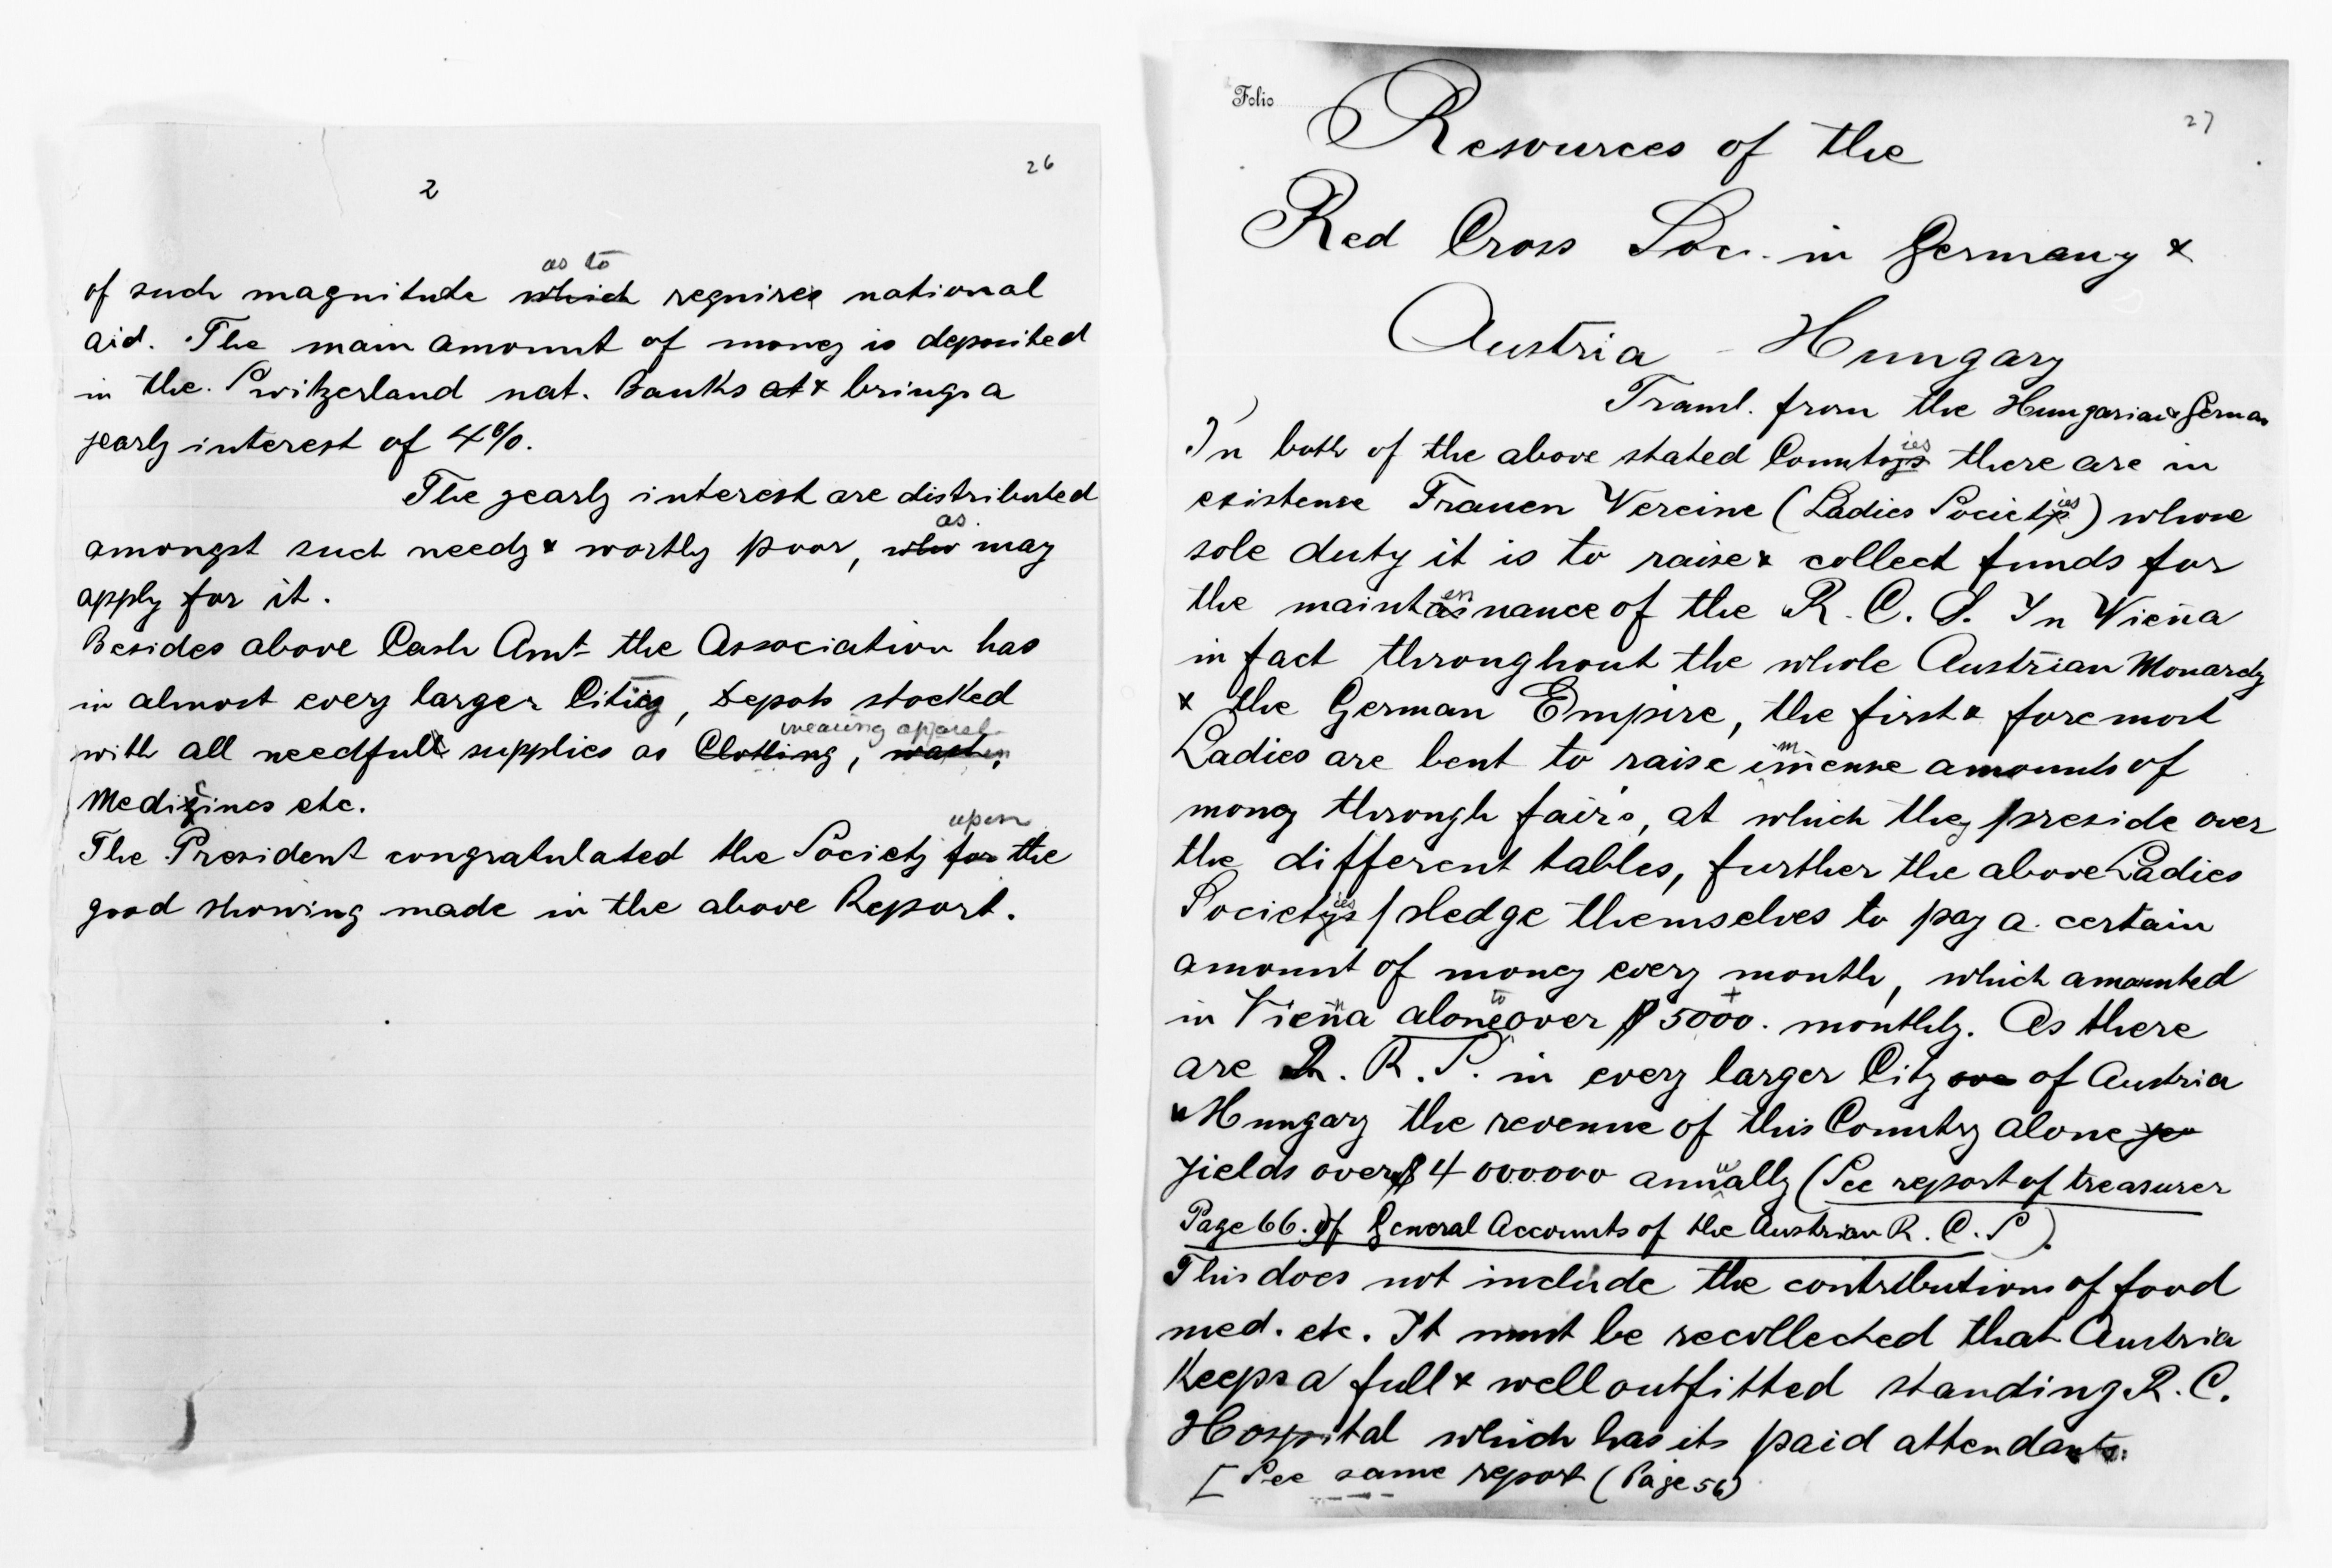 26
2
as to
of such magnitude which require national
aid. The main amount of money is deposited
in the Switzerland nat. Banks at & brings a
yearly interest of 4%.
The yearly interest are distributed
as
amongst such needy & worthy poor, who may
apply for it.
Besides above Cash Amt the Association has
in almost every larger City, Depots stocked
wearing apparel
with all needful supplies as Clothing,
Medicines etc.
upon
The President congratulated the Society for the
good showing made in the above Report.
Folio
27
Resources of the
Red Cross Soc. in Germany &
Austria - Hungary
Transl. from the Hungarian & German
ies
In both of the above stated Countrys there are in
ies
existense Frauen Vereine (Ladies Societys) whose
sole duty it is to raise & collect funds for
en
the maintainance of the R. C. S. In Vien̄a
in fact throughout the whole Austrian Monarchy
& the German Empire, the first & foremost
m
Ladies are bent to raise im̄ense amounts of
money through fair's, at which they preside over
the different tables, further the above Ladies
ies
Societys pledge themselves to pay a certain
amount of money every month, which amounted
n to +
in Vien̄a alone over $ 5000. monthly. As there
are R. R. S. in every larger City ove of Austria
Hungary the revenue of this Country alone ye
u
yields over $ 4 000.000 anually (See report of treasurer
Page 66. of General Accounts of the Austrian R. C. S).
This does not include the contributions of food
med. etc. It must be recollected that Austria
Keeps a full & well outfitted standing R. C.
Hospital which has its paid attendants.
[See same report (Page 56)